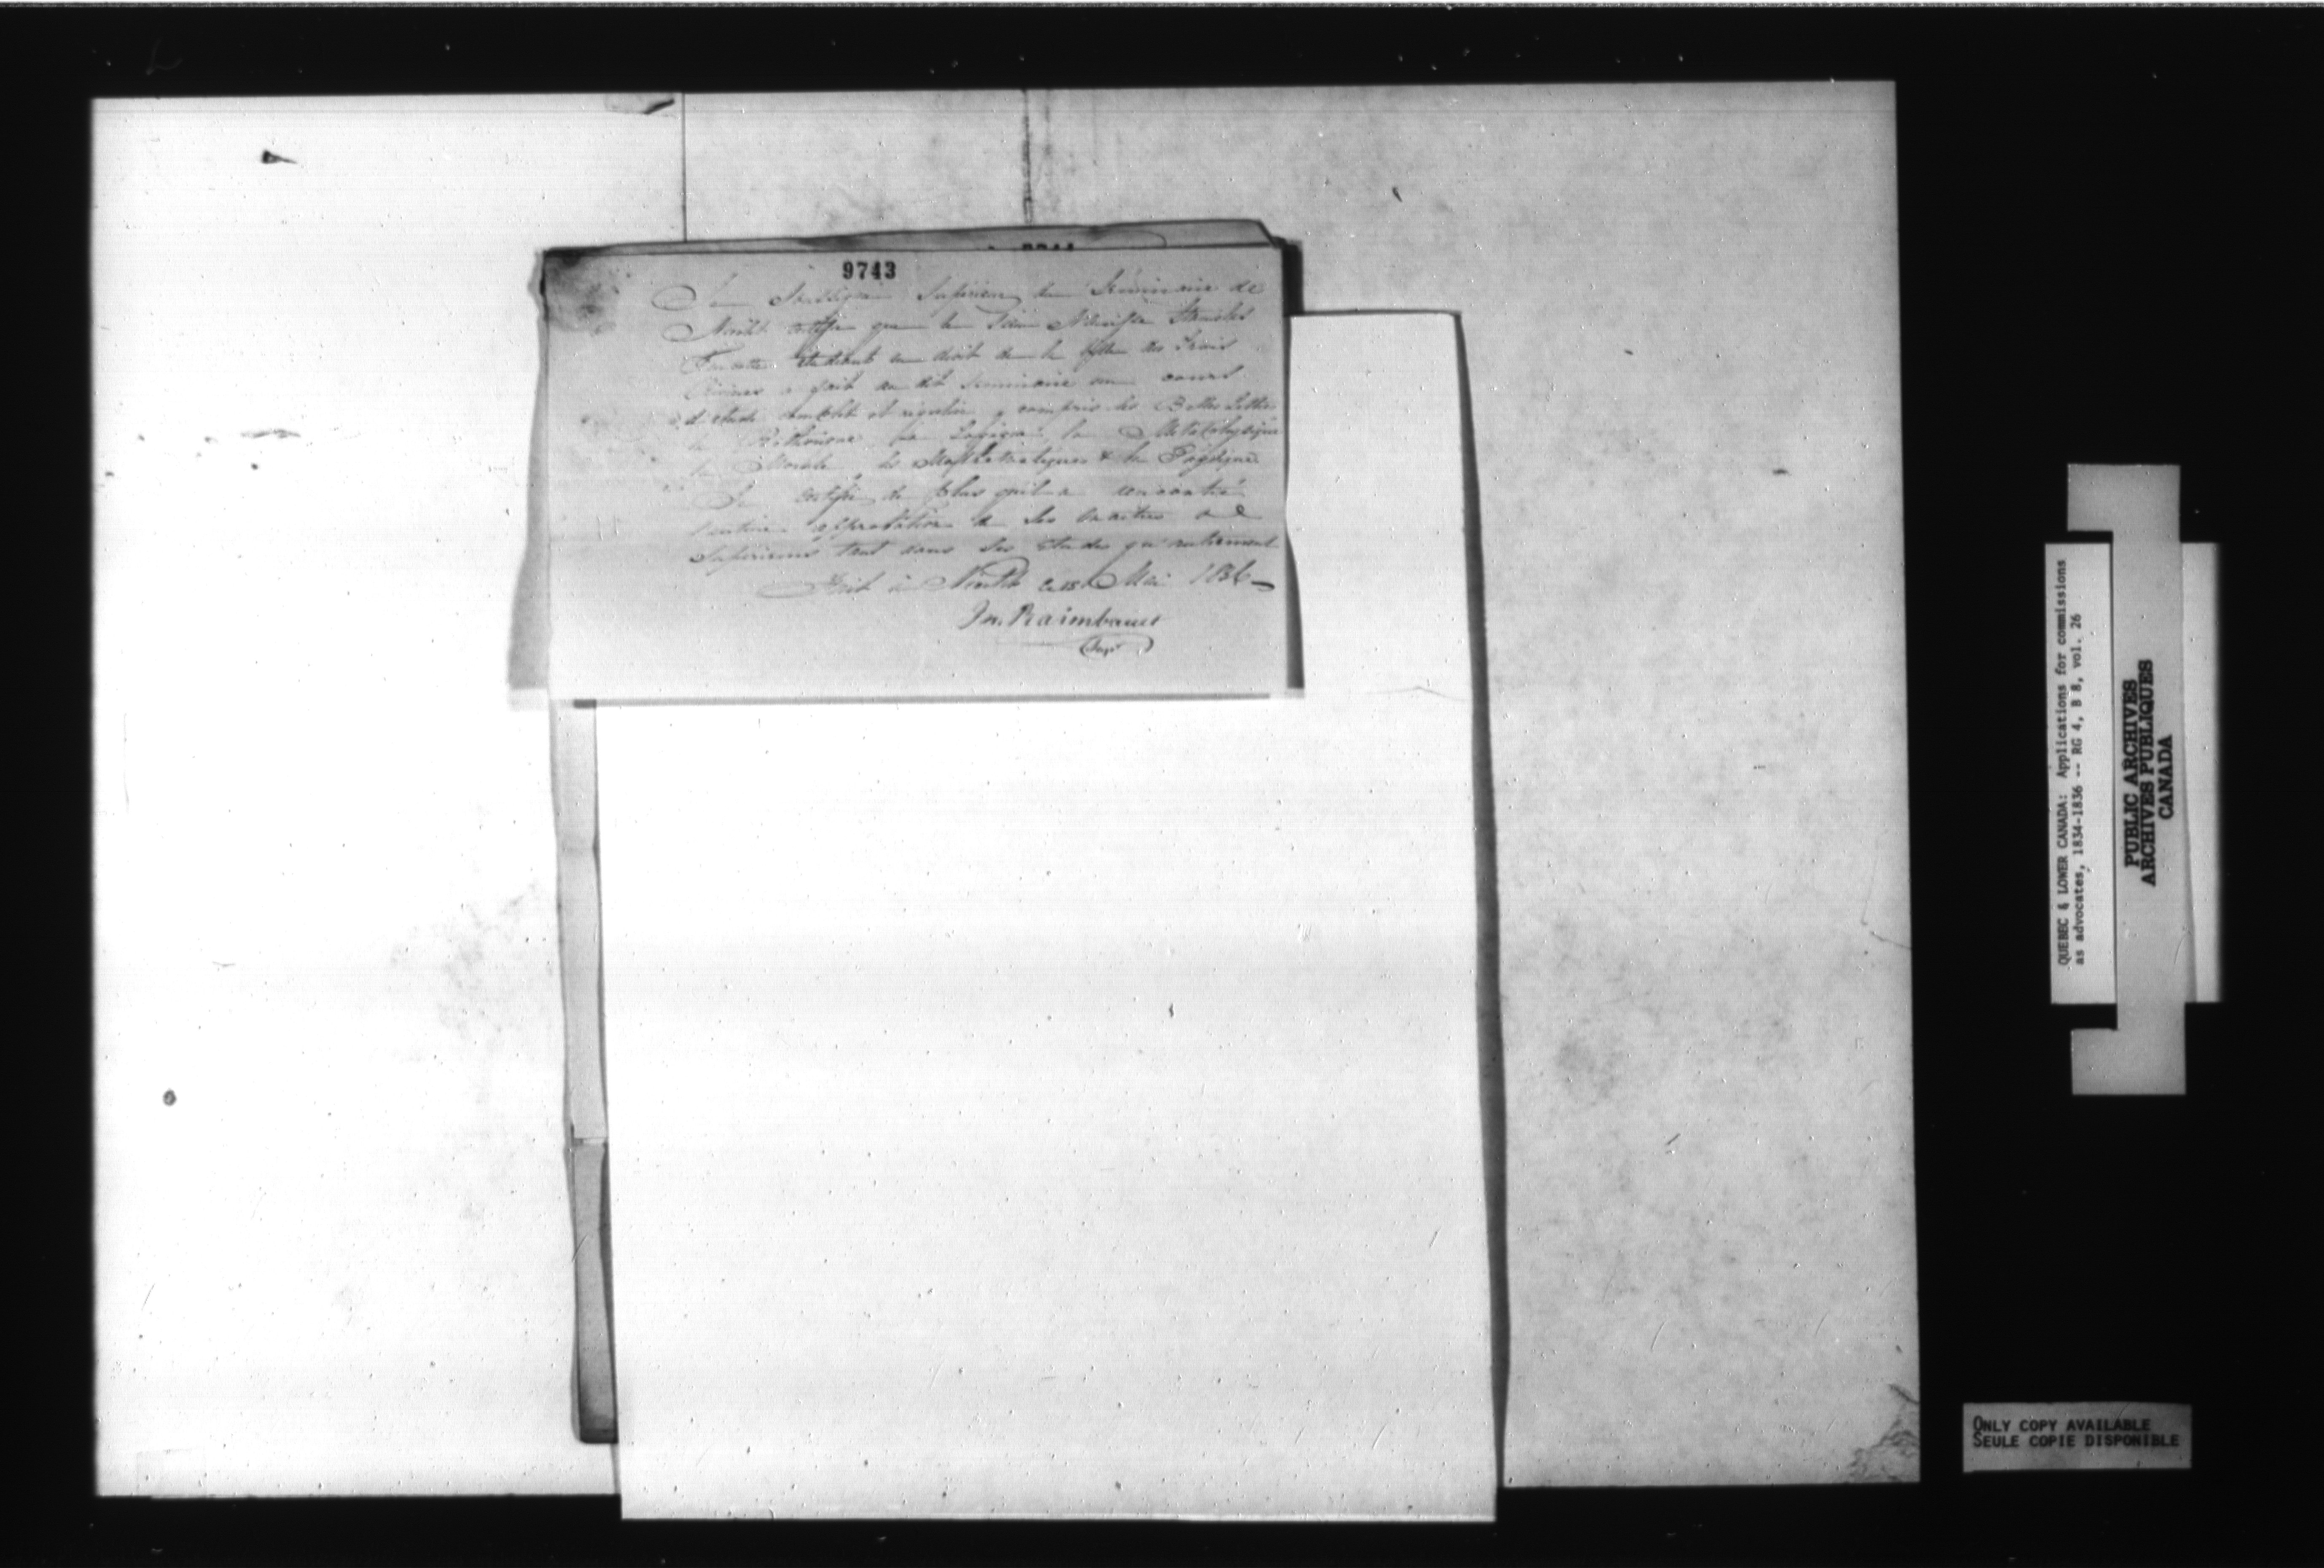 9743
Je Soussigné Supérieur du Séminaire de
Nicolet certifie que le Sieur Narcisse Stanislas
Turcotte Etudiant en droit de la ville des Trois
Rivières a fait au dit Séminaire un cours
d'étude complet et régulier y compris les Belles Lettres
la Rhétorique, la Logique, la Métaphysique
la Morale, les Mathématiques & la Physique.
Je certifie de plus qu'il a rencontré
l'entière approbation de ses maitres et
Supérieurs tant dans ses Etudes qu'autrement
Fait à Nicolet ce Mai 1836
Jn. Raimbault
Supr
QUEBEC & LOWER CANADA: Applications for commissions
as advocates, 1834-1836 -- RG 4, B 8, vol. 26
PUBLIC ARCHIVES
ARCHIVES PUBLIQUES
CANADA
ONLY COPY AVAILABLE
SEULE COPIE DISPONIBLE